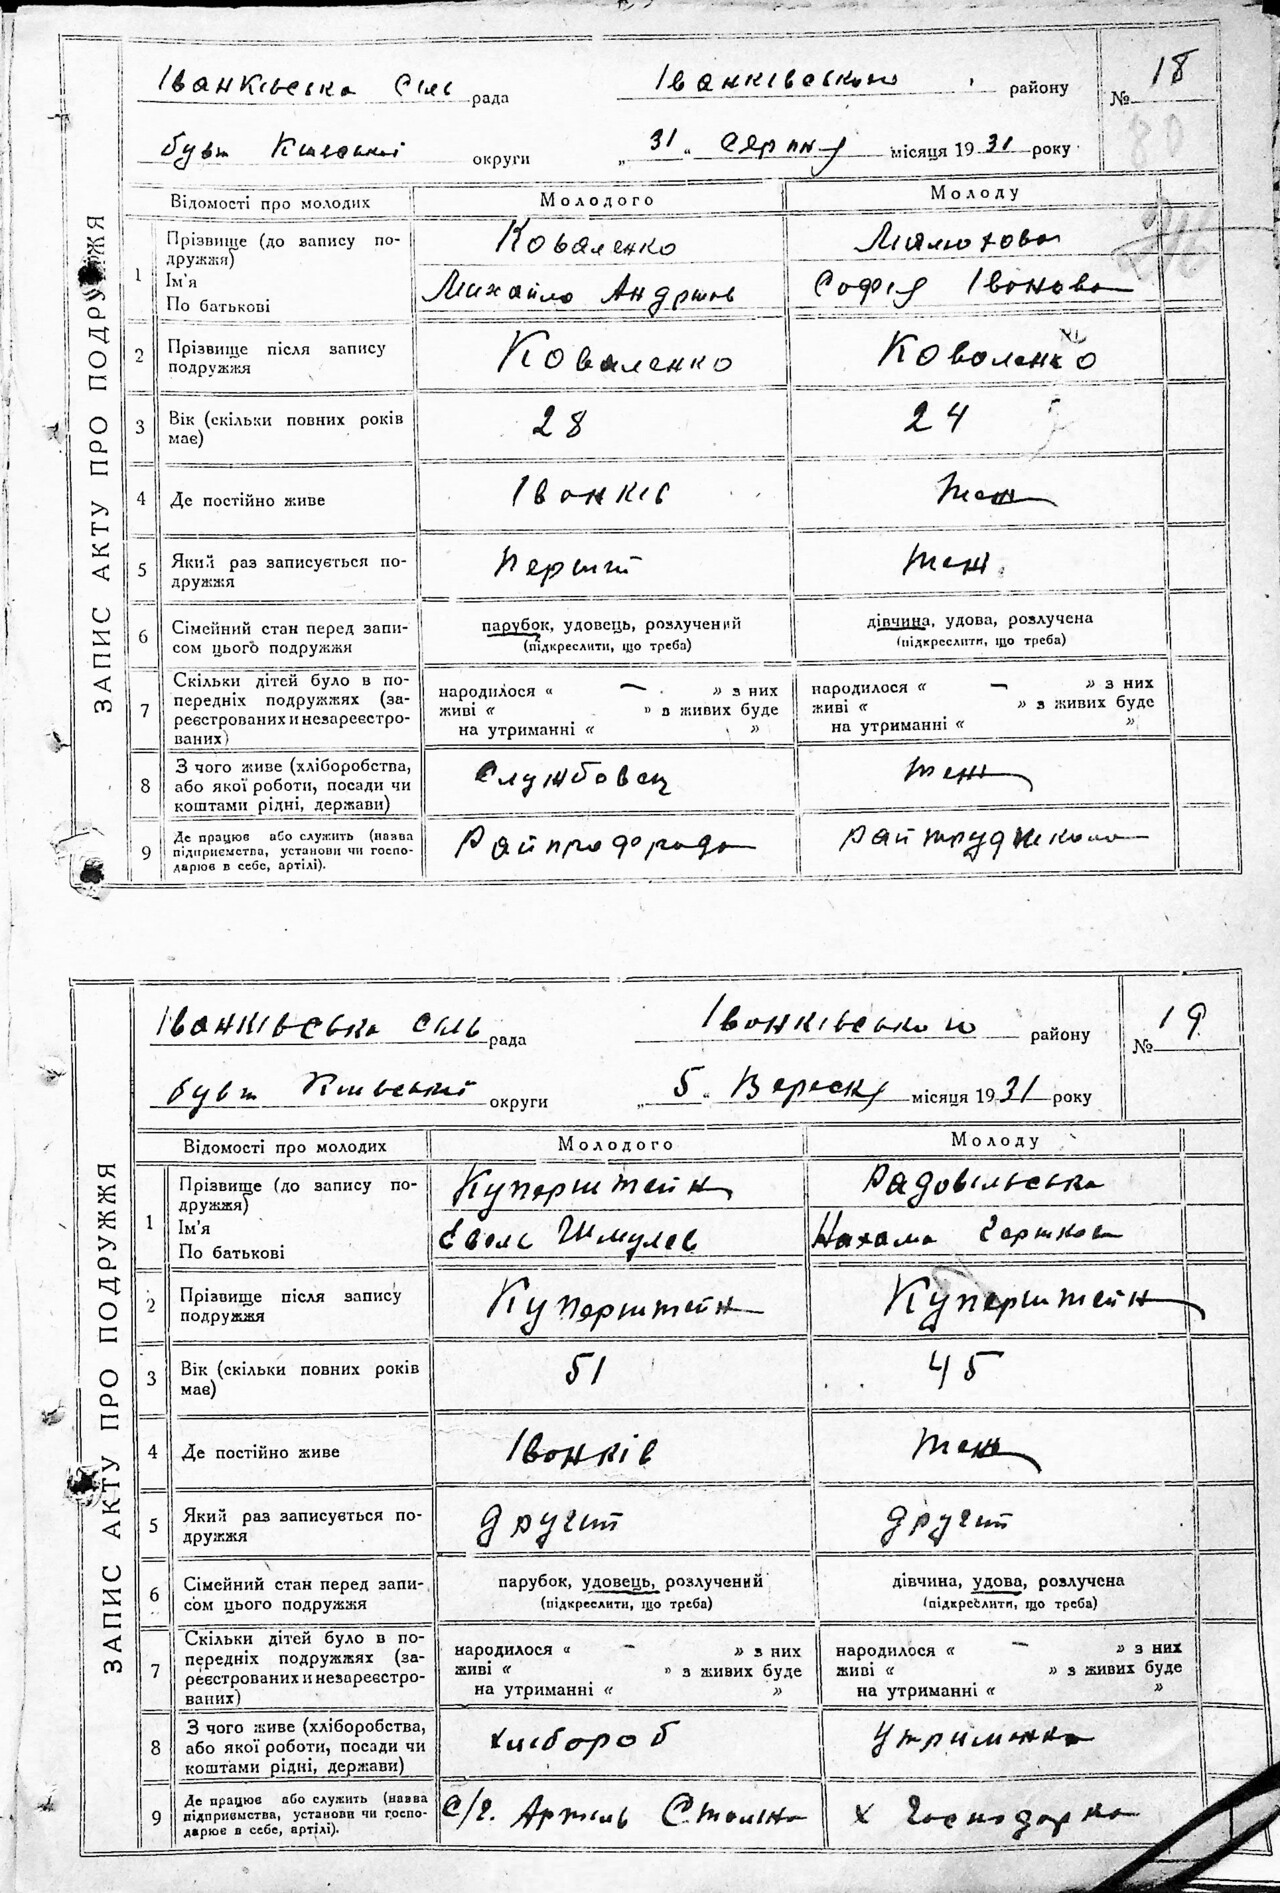 Іванківська сіль рада Іванківського району № 18
бувш Київської округи „31" серпня місяця 1931 року
80
ЗАПИС АКТУ ПРО ПОДРУЖЖЯ
Відомості про молодих Молодого Молоду
1 Прізвище (до запису подружжя) Коваленко
Ім'я Михайло Софія Іванова
По батькові
2 Прізвище після запису подружжя Коваленко Коваленко
3 Вік (скільки повних років має) 28 24
4 Де постійно живе Іванків теж
5 Який раз записується подружжя перший теж
6 Сімейний стан перед записом цього подружжя парубок, удовець, розлучений дівчина, удова, розлучена
(підкреслити, що треба) (підкреслити, що треба)
7 Скільки дітей було в попередніх подружжях (зареєстрованих и незареєстрованих) народилося « – » з них народилося « – » з них
живі « » в живих буде живі « » з живих буде
на утриманні « » на утриманні « »
8 З чого живе (хліборобства, або якої роботи, посади чи коштами рідні, держави) Службовец теж
9 Де працює або служить (назва підприємства, установи чи господарює в себе, артілі). Райпрофрада
Іванківська сіль рада Іванківського району № 19
бувш Київської округи „5" Вересня місяця 1931 року
ЗАПИС АКТУ ПРО ПОДРУЖЖЯ
Відомості про молодих Молодого Молоду
1 Прізвище (до запису подружжя) Куперштейн Радовільська
Ім'я Шмулев Нахама
По батькові
2 Прізвище після запису подружжя Куперштейн Куперштейн
3 Вік (скільки повних років має) 51 45
4 Де постійно живе Іванків теж
5 Який раз записується подружжя другий другий
6 Сімейний стан перед записом цього подружжя парубок, удовець, розлучений дівчина, удова, розлучена
(підкреслити, що треба) (підкреслити, що треба)
7 Скільки дітей було в попередніх подружжях (зареєстрованих и незареєстрованих) народилося « – » з них народилося « – » з них
живі « » в живих буде живі « » з живих буде
на утриманні « » на утриманні « »
8 З чого живе (хліборобства, або якої роботи, посади чи коштами рідні, держави) хлібороб утриманка
9 Де працює або служить (назва підприємства, установи чи господарює в себе, артілі). С/г. Артиль Сталіна х господарка